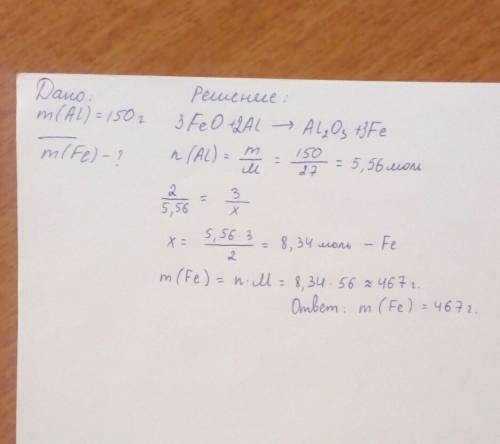 Дано:
m(Al) = 150 г
m(Fe) - ?
Решение:
3FeO + 2Al → Al₂O₃ + 3Fe
n(Al) = m/M = 150/27 = 5,56 моль
2/5,56 = 3/x
x = 5,56·3/2 = 8,34 моль – Fe
m(Fe) = n·M = 8,34·56 ≈ 467 г.
Ответ: m(Fe) = 467 г.